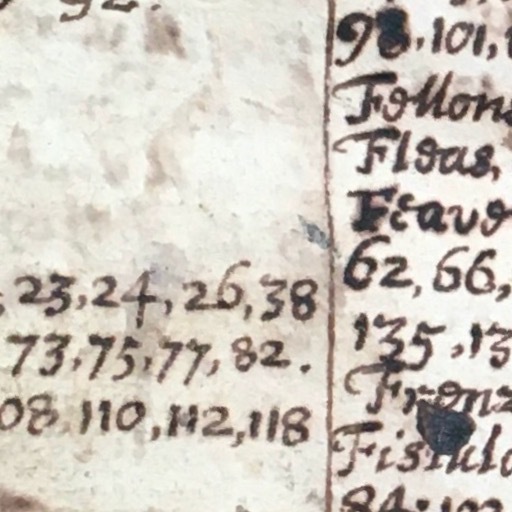 92.
, 23, 24, 26, 38
73, 75, 77, 82.
08, 110, 112, 118
98, 101, 1
Follons
Fleas,
62, 66,
135, 13
Frenz
Fistulo
84, 102